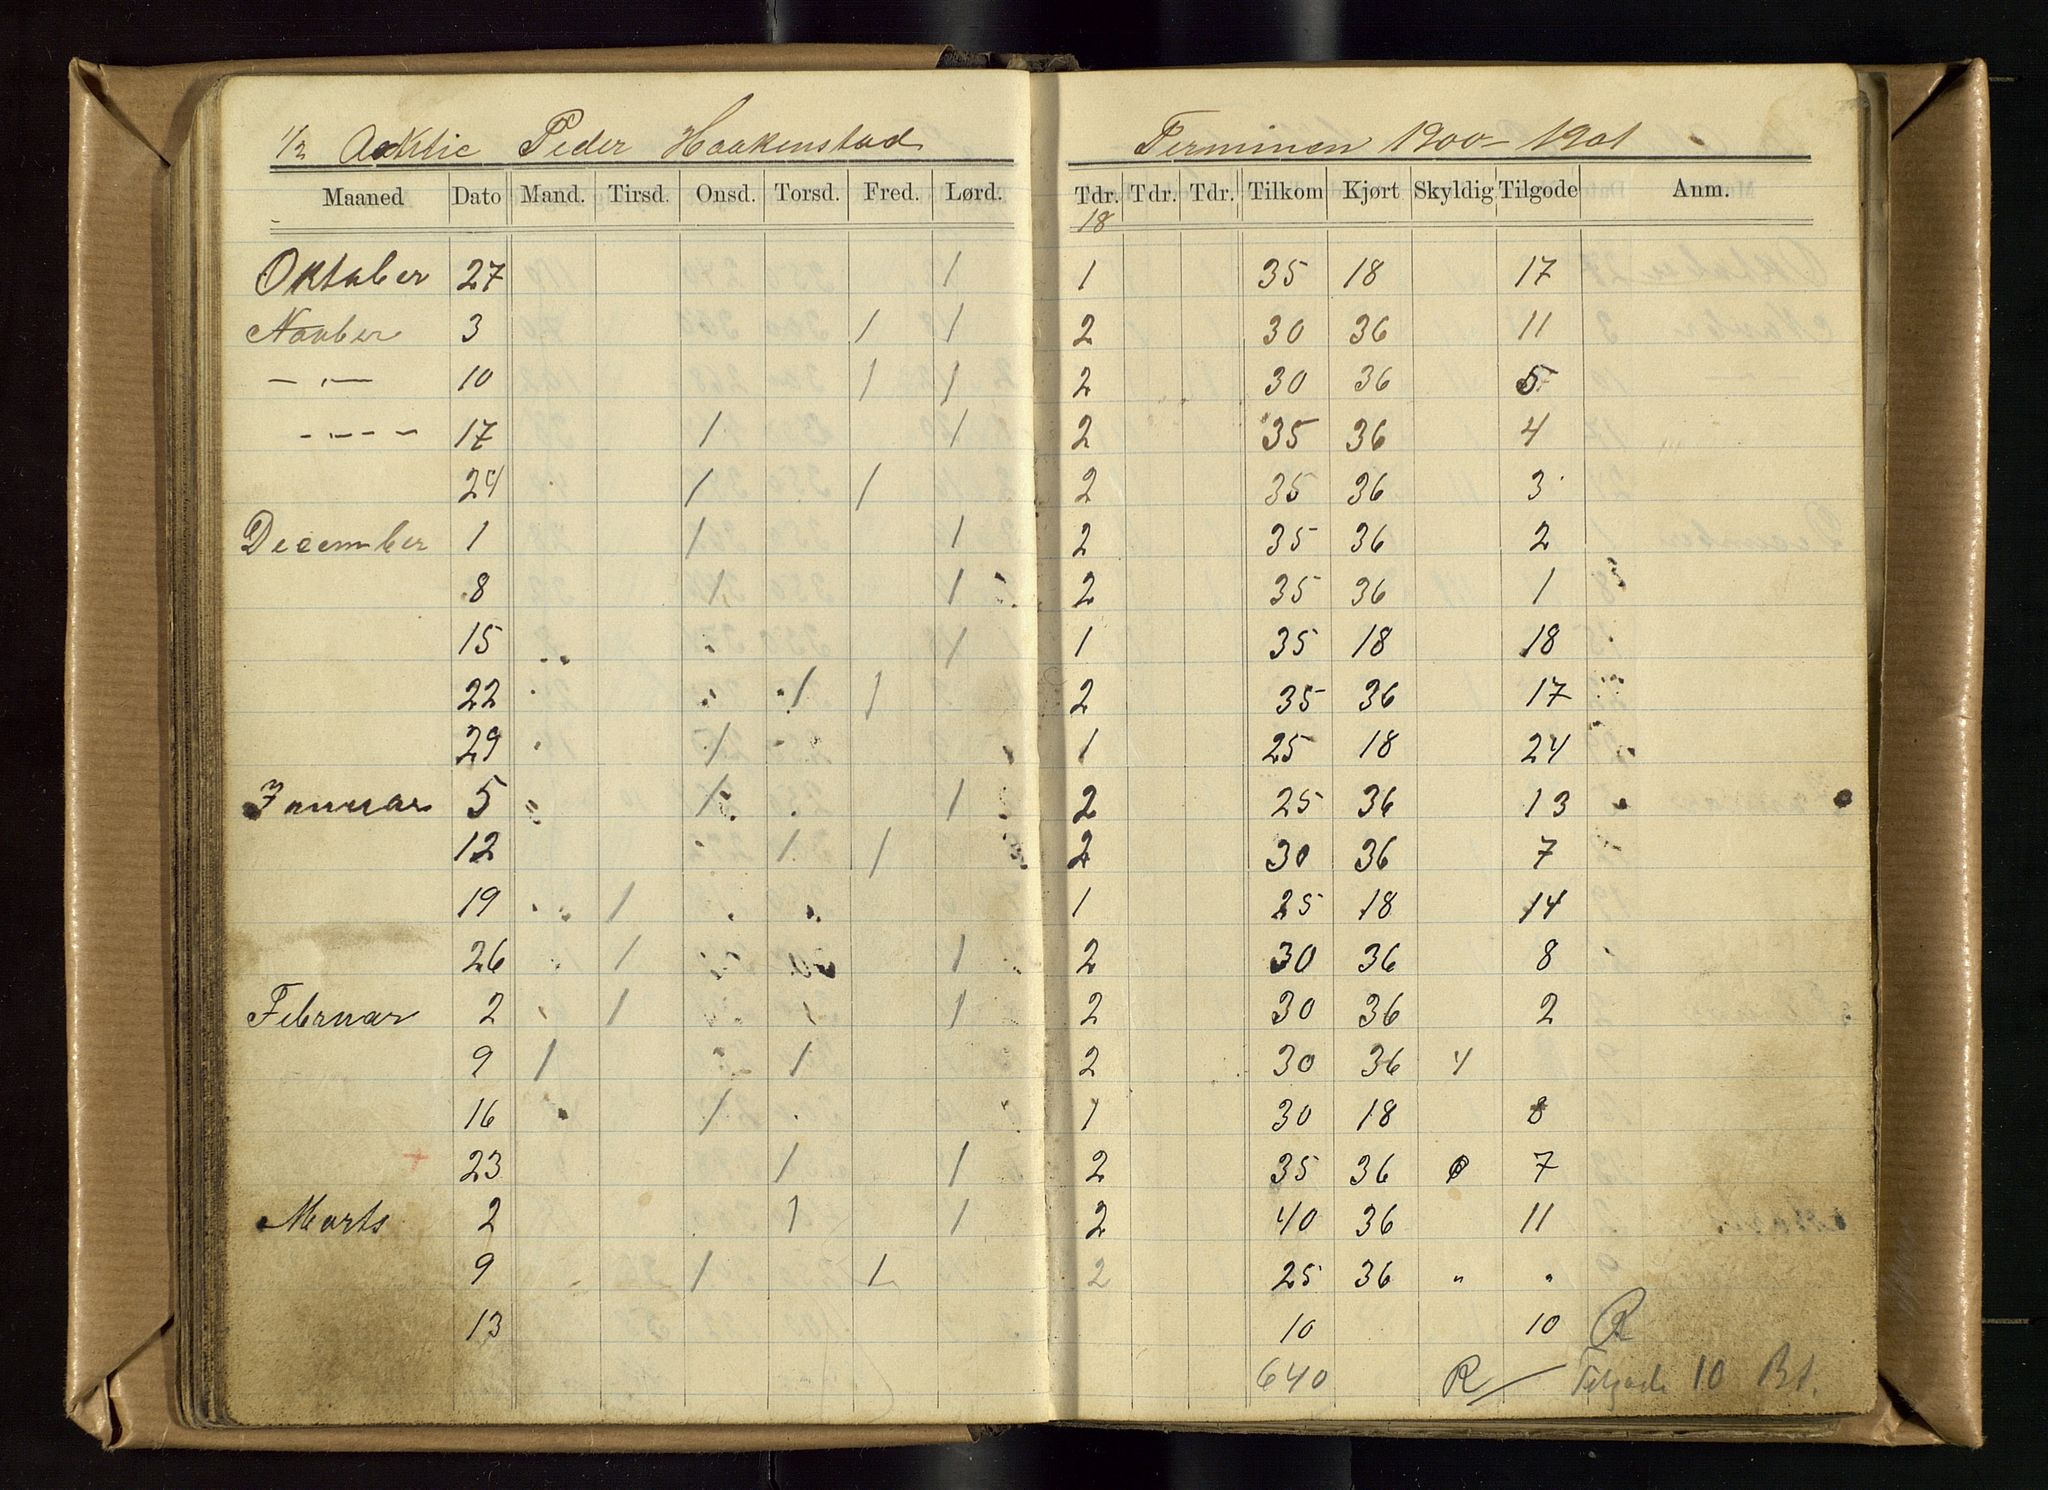 1/2 Acktie Peder Haakenstad Terminen 1900–1901
Maaned Dato Mand. Tirsd. Onsd. Torsd. Fred. Lørd. Tdr. Tdr. Tdr. Tilkom Kjørt Skyldig Tilgode Anm.
18
Oktober 27 1 1 35 18 17
Novber 3 1 1 2 30 36 11
— „ — 10 1 1 2 30 36 5
- - - - 17 1 1 2 35 36 4
24 1 1 2 35 36 3
December 1 1 1 2 35 36 2
8 1 1 2 35 36 1
15 1 1 35 18 18
22 1 1 2 35 36 17
29 1 1 25 18 24
Januar 5 1 1 2 25 36 13
12 1 1 2 30 36 7
19 1 1 25 18 14
26 1 1 2 30 36 8
Februar 2 1 1 2 30 36 2
9 1 1 2 30 36 4
16 1 1 30 18 8
23 1 1 2 35 36 7
Marts 2 1 1 2 40 36 11
9 1 1 2 25 36 " "
13 10 10 R
640 R Tilgode 10 Bt.